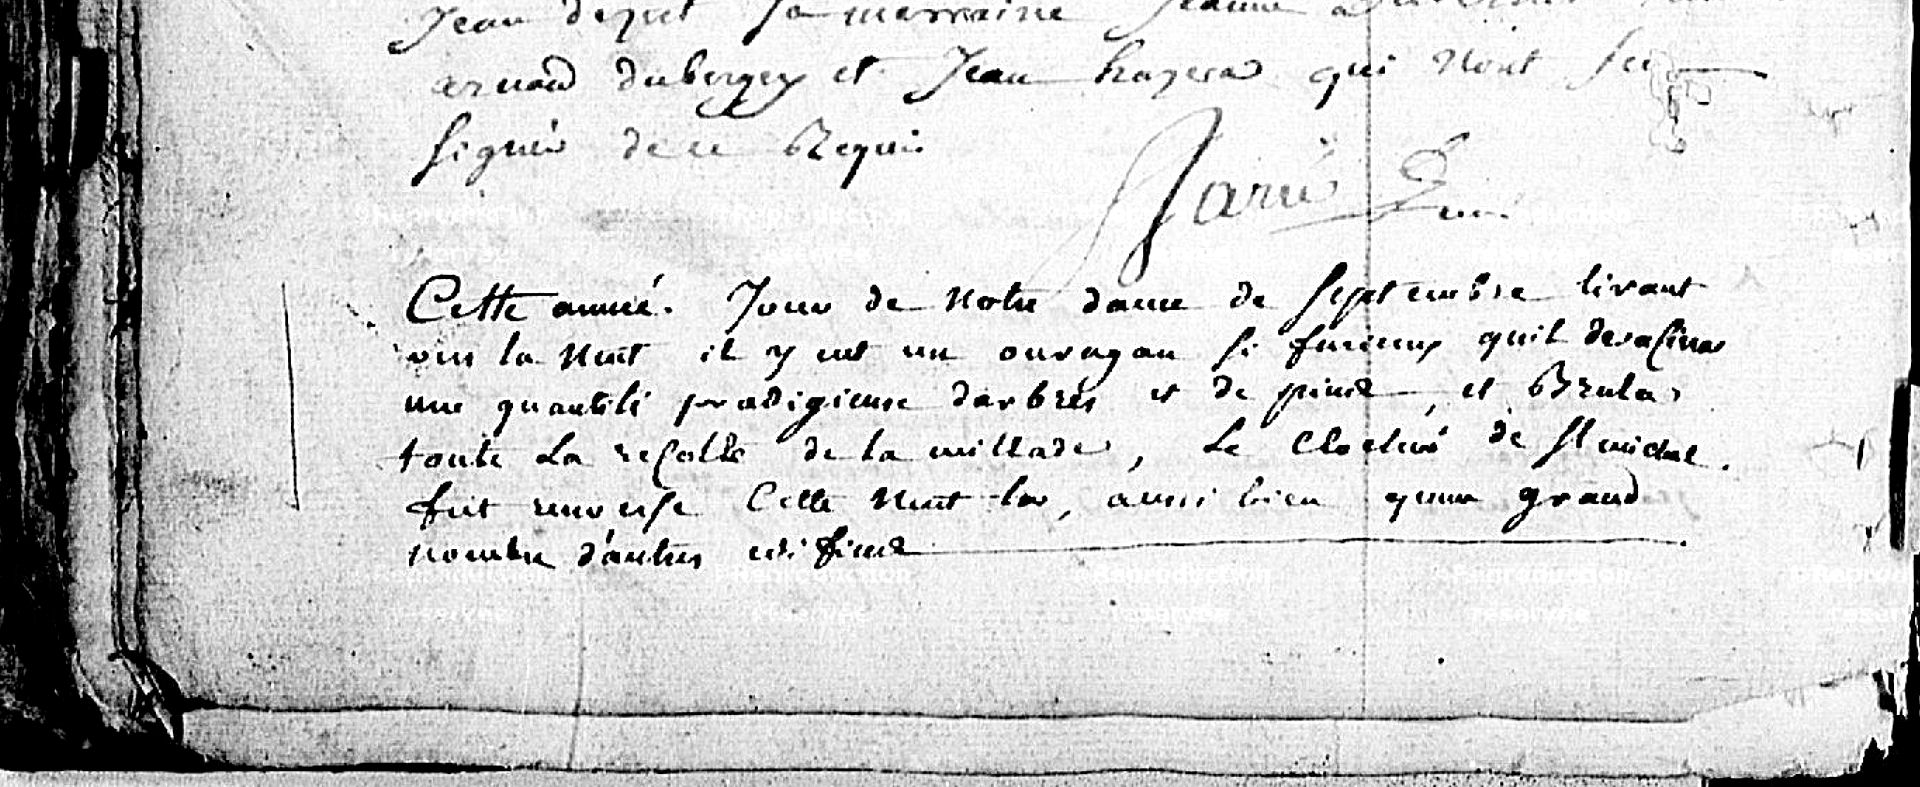 Jean deput sa marraine Jeanne
arnaud dubergey et Jean hazera qui nont sceu
signer de ce Requis
Cette année. Jour de Notre dame de septembre tirant
vers la Nuit il y eut un ouragan si furieux quil desasinas
une quantité prodigieuse darbres et de pins, et Brula
toute La recolte de la millade, Le Clocher de st michel.
fut renverse Cette Nuit la, aussi bien quun grand
nombre d'autres edifices